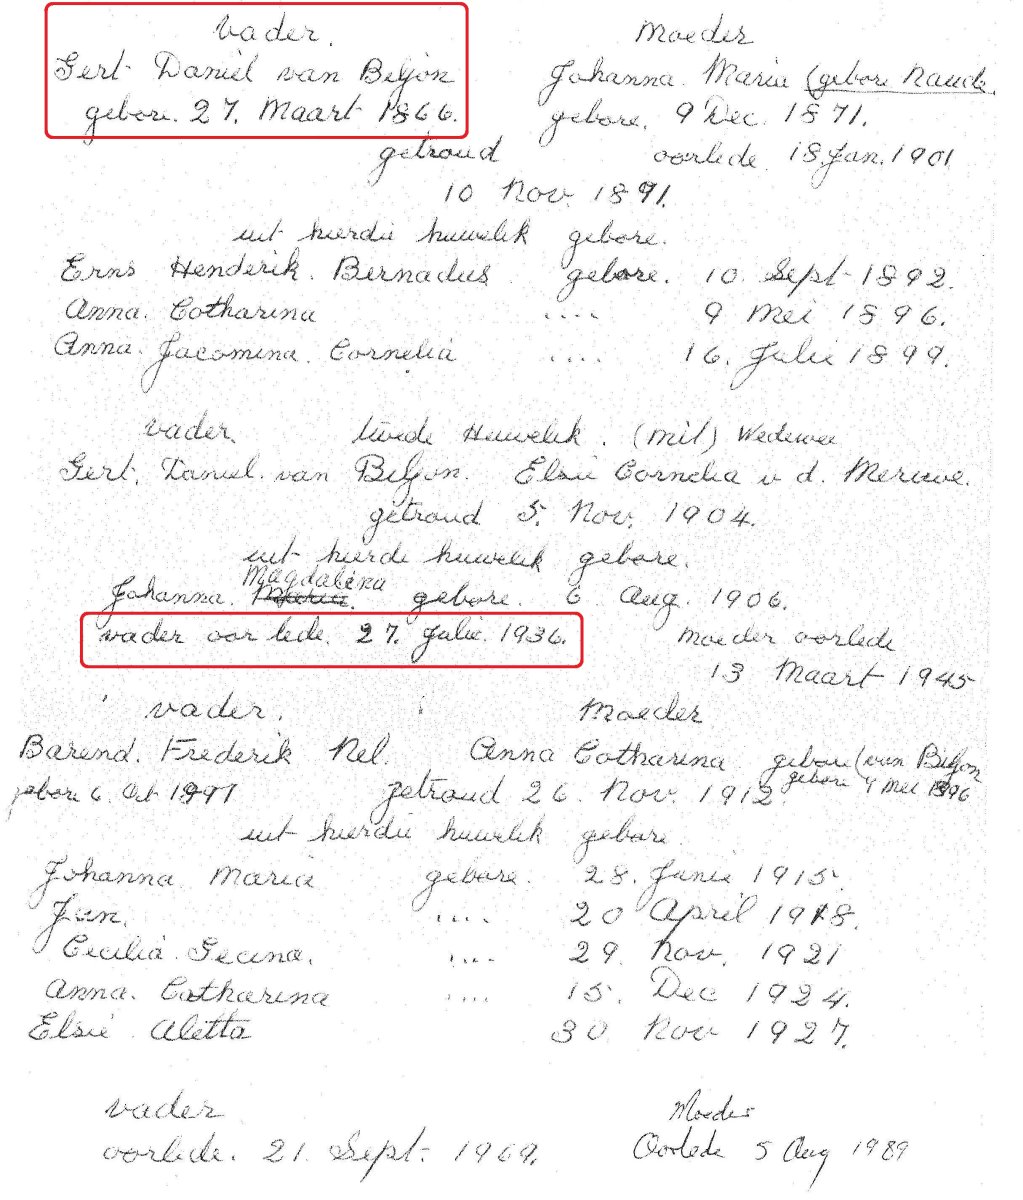 vader. Moeder
Gert Daniel van Biljon Johanna Maria (gebore Naude.
gebore. 27. Maart 1866. gebore. 9 Dec. 1871.
getroud oorlede 18 Jan. 1901
10 Nov. 1891.
uit hierdie huwelik gebore.
Erns Henderik. Bernadus gebore. 10. Sept 1892.
Anna. Catharina .... 9 Mei 1896.
Anna. Jacomina. Cornelia .... 16. Julie 1899.
vader. twede Huwelik. (mit) Wedewee
Gert. Daniel. van Biljon. Elsie Cornelia v d. Merwe.
getroud 5. Nov. 1904.
uit hierdi huwelik gebore.
Magdalena
Johanna. Maria. gebore. 6 Aug. 1906.
vader oorlede. 27. Julie. 1936. Moeder oorlede
13 Maart 1945
vader. Moeder
Barend. Frederik Nel. Anna Catharina gebore (van Biljon
gebore 6. Oct getroud 26. Nov. 1912. gebore 9 Mei 1896
uit hierdie huwelik gebore
Johanna Maria gebore. 28. Junie 1915.
Jan. .... 20 April 1918.
Cecilia Gecina. .... 29. Nov. 1921
Anna. Catharina .... 15. Dec 1924.
Elsie Aletta 30 Nov 1927.
vader Moeder
oorlede. 21. Sept. 1969. Oorlede 5 Aug 1989